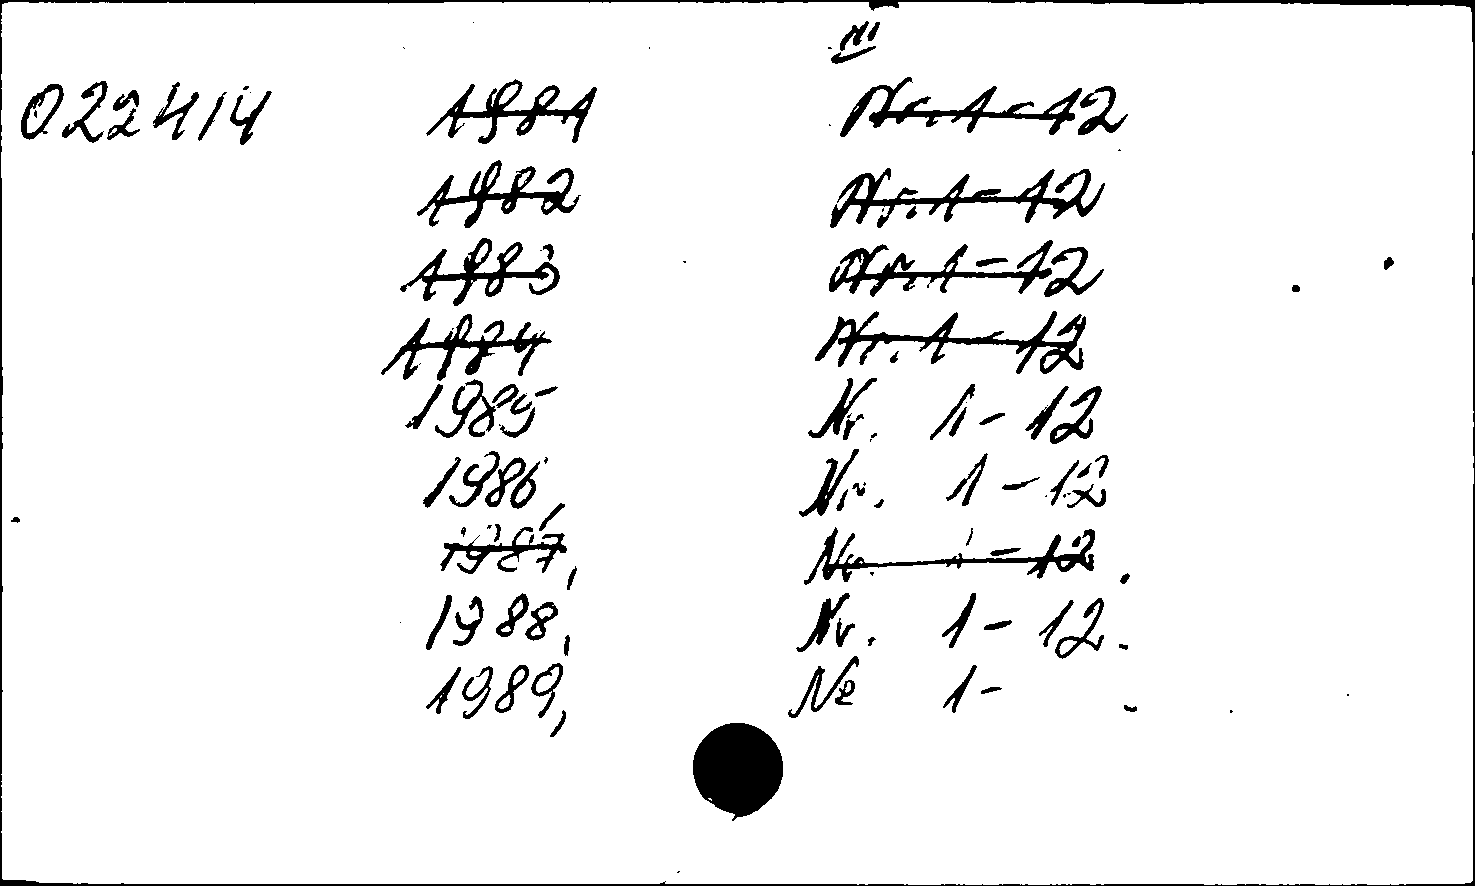 III
022414 1981 Nr. 1-12
1982 Nr. 1-12
1983 Nr. 1-12
1984 Nr. 1-12
1985 Nr. 1-12
1986, Nr. 1-12
1987, Nr. 1-12.
1988, Nr. 1-12.
1989, № 1- .